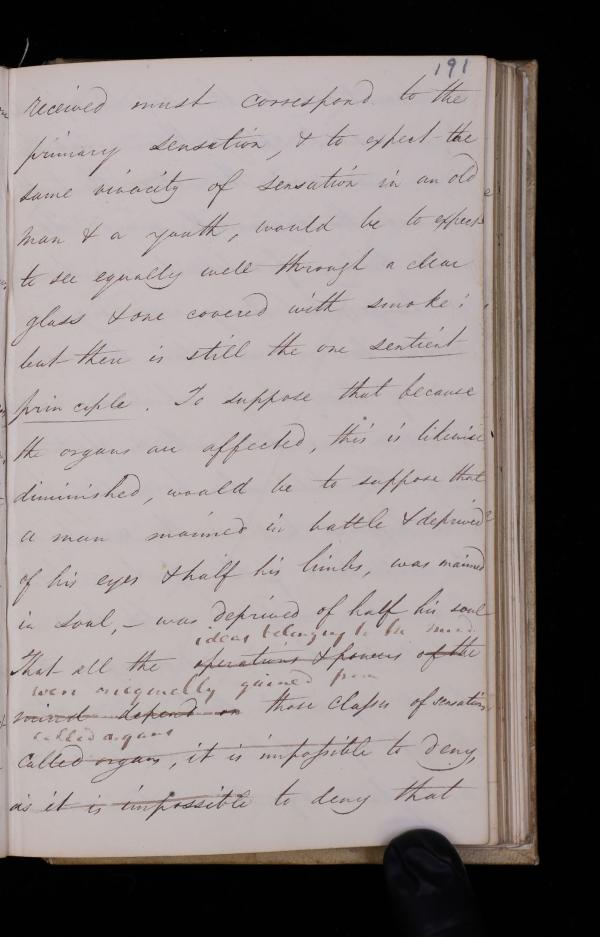 191
received must correspond to the
primary sensation, & to expect the
same vivacity of sensation in an old
man & a youth, would be to expect
to see equally well through a clear
glass & one covered with smoke;
but there is still the one sentient
principle. To suppose that because
the organs are affected, this is likewise
diminished, would be to suppose that
a man maimed in battle & deprived
of his eyes & half his limbs, was maimed
in soul, – was deprived of half his soul
ideas belonging to the mind
That all the operations & powers of the
were originally gained from
mind depend on those classes of sensation
called organs
called organs, it is impossible to deny,
as it is impossible to deny that